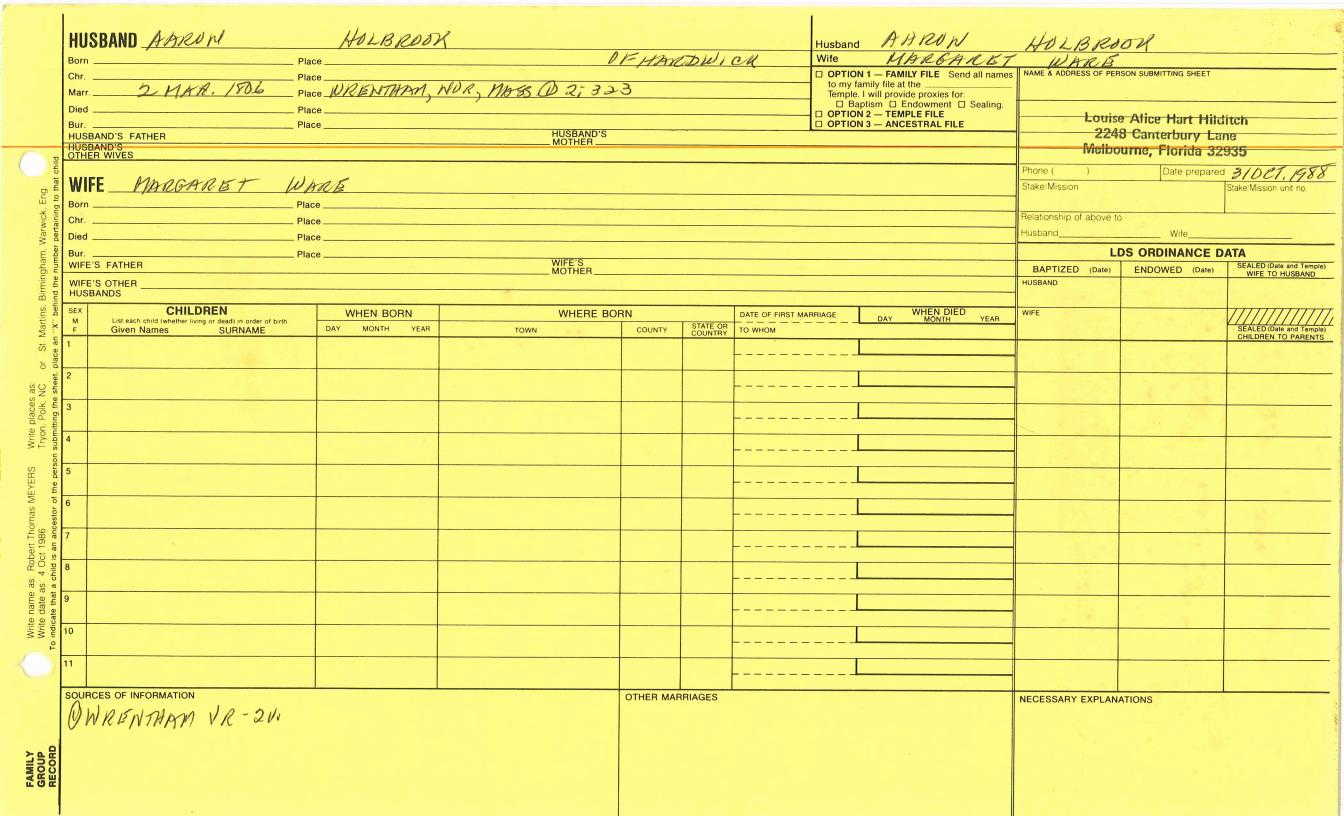 HUSBAND AARON HOLBROOK
Born Place OF HARDWICK
Chr. Place
Marr. 2 MAR. 1806 Place WRENTHAM, NOR, MASS ① 2; 323
Died Place
Bur. Place
HUSBAND'S FATHER HUSBAND'S MOTHER
HUSBAND'S OTHER WIVES
WIFE MARGARET WARE
Born Place
Chr. Place
Died Place
Bur. Place
WIFE'S FATHER WIFE'S MOTHER
WIFE'S OTHER HUSBANDS
Husband AARON HOLBROOK
Wife MARGARET WARE
☐ OPTION 1 — FAMILY FILE Send all names
to my family file at the
Temple. I will provide proxies for:
☐ Baptism ☐ Endowment ☐ Sealing.
☐ OPTION 2 — TEMPLE FILE
☐ OPTION 3 — ANCESTRAL FILE
NAME & ADDRESS OF PERSON SUBMITTING SHEET
Louise Alice Hart Hilditch
2248 Canterbury Lane
Melbourne, Florida 32935
Phone ( ) Date prepared 31 OCT. 1988
Stake/Mission Stake/Mission unit no.
Relationship of above to
Husband Wife
LDS ORDINANCE DATA
BAPTIZED (Date) ENDOWED (Date) SEALED (Date and Temple) WIFE TO HUSBAND
HUSBAND
WIFE
SEALED (Date and Temple) CHILDREN TO PARENTS
SEX M F
CHILDREN
List each child (whether living or dead) in order of birth
Given Names SURNAME
WHEN BORN
DAY MONTH YEAR
WHERE BORN
TOWN COUNTY STATE OR COUNTRY
DATE OF FIRST MARRIAGE
TO WHOM
WHEN DIED
DAY MONTH YEAR
1
2
3
4
5
6
7
8
9
10
11
SOURCES OF INFORMATION
① WRENTHAM VR - 2V.
OTHER MARRIAGES
NECESSARY EXPLANATIONS
Write name as: Robert Thomas MEYERS Write places as: Tryon, Polk, NC or St. Martins, Birmingham, Warwick, Eng.
Write date as: 4 Oct 1986
To indicate that a child is an ancestor of the person submitting the sheet, place an "X" behind the number pertaining to that child
FAMILY
GROUP
RECORD